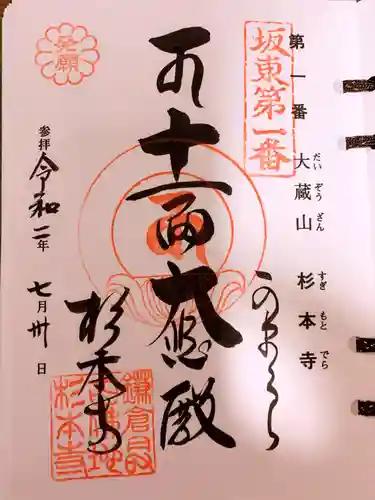 第一番 大蔵山 杉本寺
だいぞうざん すぎもとでら
坂東第一番
かまくら
十一面大悲殿
杉本寺
発願
参拝 令和二年 七月卅日
杉本寺